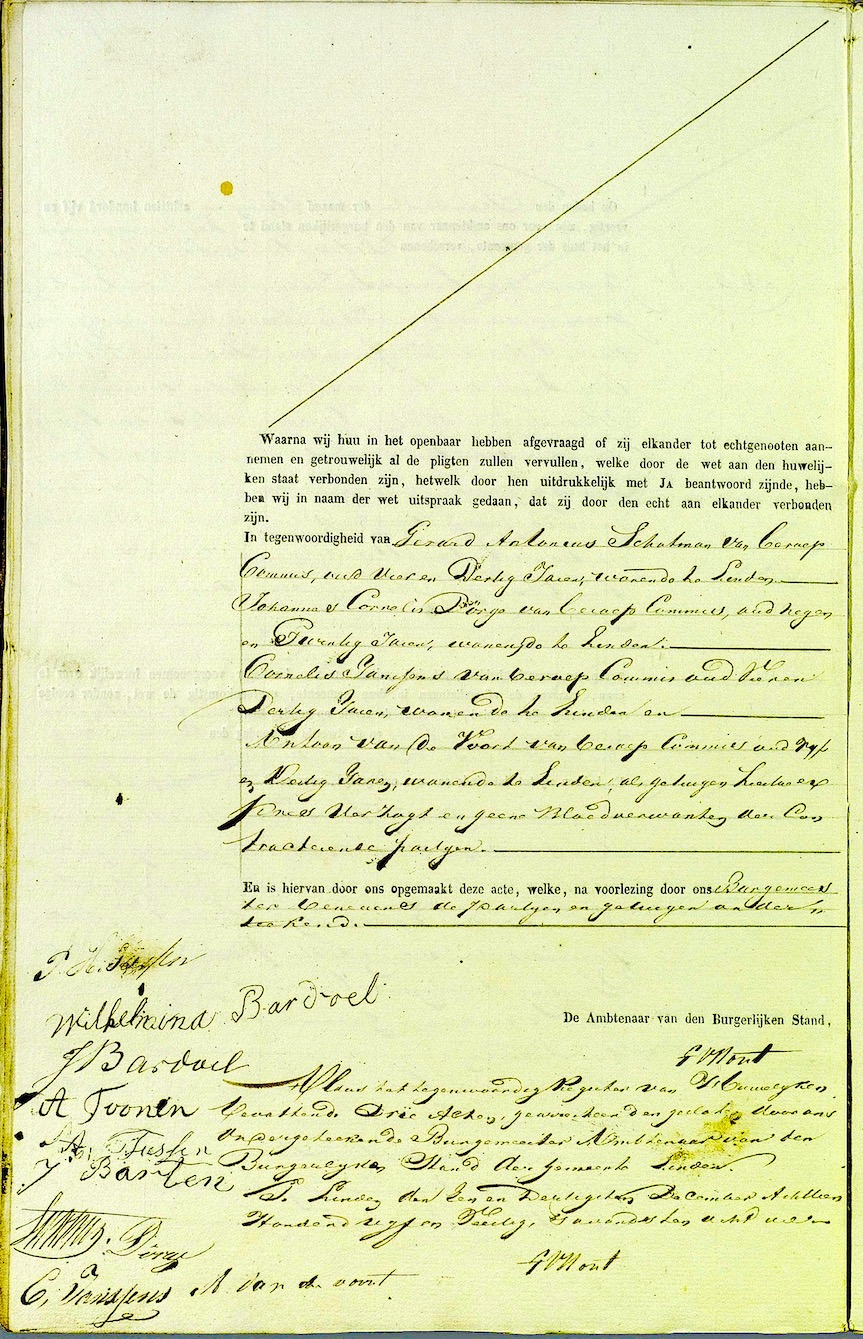 Waarna wij hun in het openbaar hebben afgevraagd of zij elkander tot echtgenooten aan-
nemen en getrouwelijk al de pligten zullen vervullen, welke door de wet aan den huwelij-
ken staat verbonden zijn, hetwelk door hen uitdrukkelijk met JA beantwoord zijnde, heb-
ben wij in naam der wet uitspraak gedaan, dat zij door den echt aan elkander verbonden
zijn.
In tegenwoordigheid van Gerard Antonius Schotman van beroep
Commies, oud vier en Dertig Jaren, wonende te Linden
Johannes Cornelis van beroep Commies, oud negen
en Twintig Jaren, wonende te Linden.
Cornelis Janssens van beroep Commies oud
Dertig Jaren, wonende te Linden en
Antoon van de Voort van beroep Commies oud vyf
en Dertig Jaren, wonende te Linden, als getuigen hiertoe ex
pres verzogt en geene Bloedverwanten der Con
tracterende partyen.
En is hiervan door ons opgemaakt deze acte, welke, na voorlezing door ons Burgemees
ter benevens de partyen en getuigen onder
teekend.
Wilhelmina Bardoel
De Ambtenaar van den Burgerlijken Stand,
J Bardoel
het tegenwoordig Register van Huwelyken
A Toonen
bevattende Drie Acten, door ons
Ondergeteekende Burgemeester Ambtenaar van den
J Barten
Burgerlyken Stand der Gemeente Linden.
Te Linden den Een en Dertigsten December Achttien
Honderd vyf en Veertig, s'avonds ten acht uren
C. Janssens A van de voort